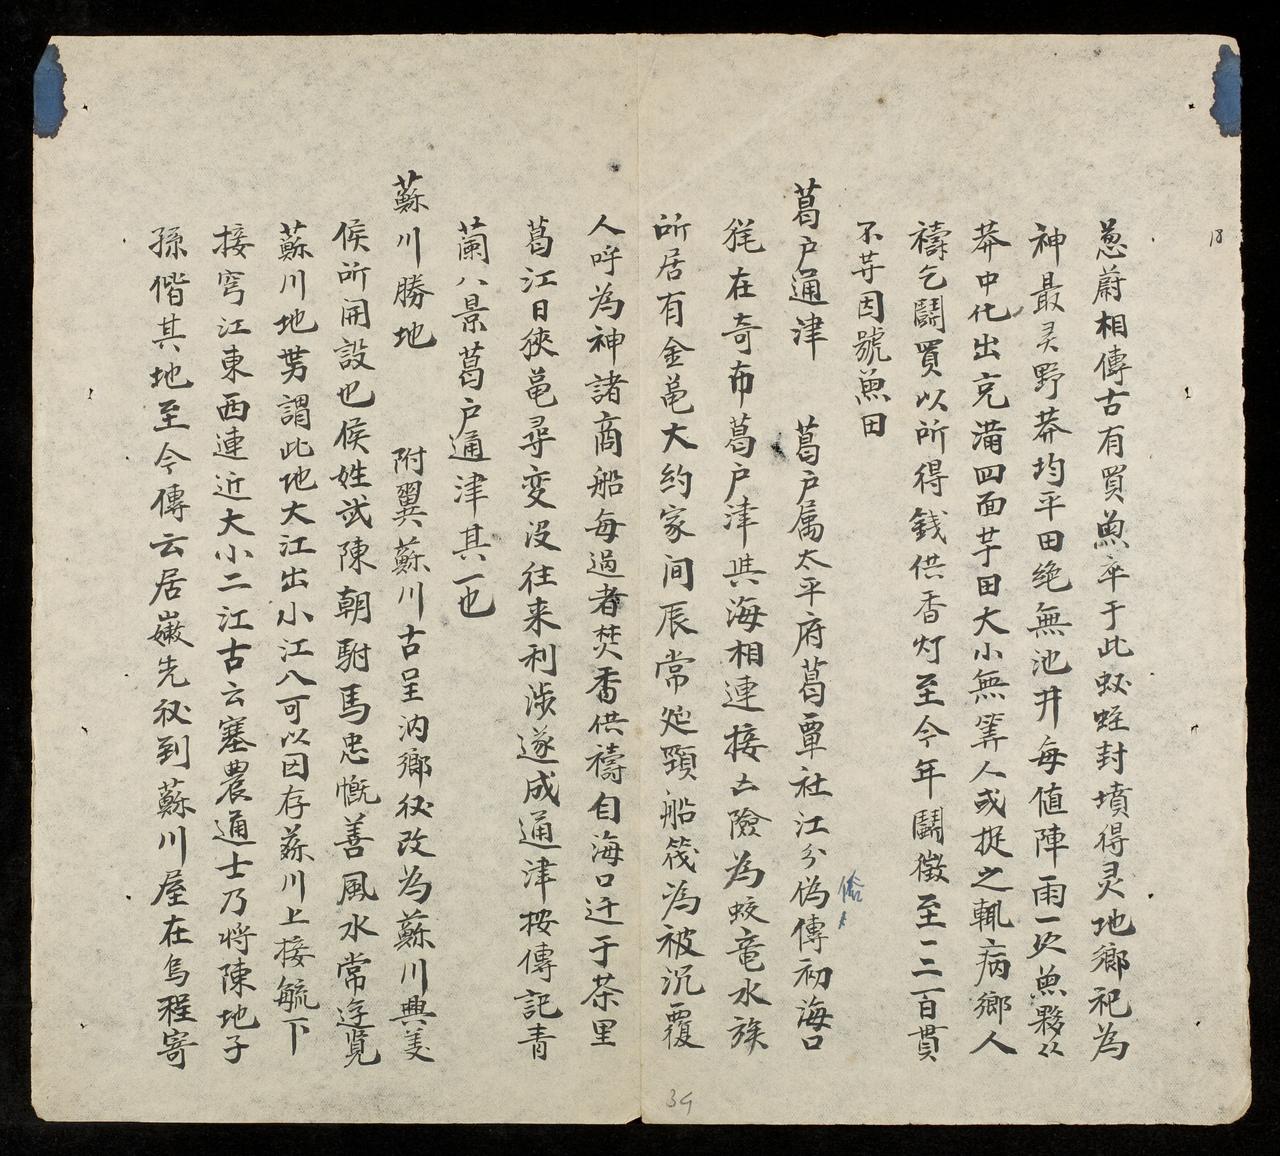 18
蔥蔚相傳古有買魚卒于此蚁蛭封墳得灵地鄉祀為
神最灵野莽均平田絶無池井每值陣雨一次魚夥从
莽中化出充滿四面芋田大小無筭人或捉之輒病鄉人
禱乞鬪買以所得銭供香灯至今年鬪徵至二三百貫
不芽因號魚田
葛户通津 葛户属太平府葛覃社江分偽傳初海口
𣭛在奇布葛户津與海相連接亡險為蛟竜水族
所居有金黾大約家间辰常処頸船筏為被沉覆
人呼為神諸商船每過者焚香供禱自海口迁于茶里
葛江日狹黾尋変没往来利涉遂成通津按傳記青
蘭八景葛户通津其一也
蘇川勝地 附翼蘇川古呈汭鄉後改為蘇川興美
侯所開設也侯姓武陳朝駙馬忠慨善風水常遊覧
蘇川地勢謂此地大江出小江入可以因存蘇川上接毓下
接穹江東西連近大小二江古云塞農通士乃將陳地子
孫偕其地至今傳云居嫩先後到蘇川屋在烏程寄
偸
39